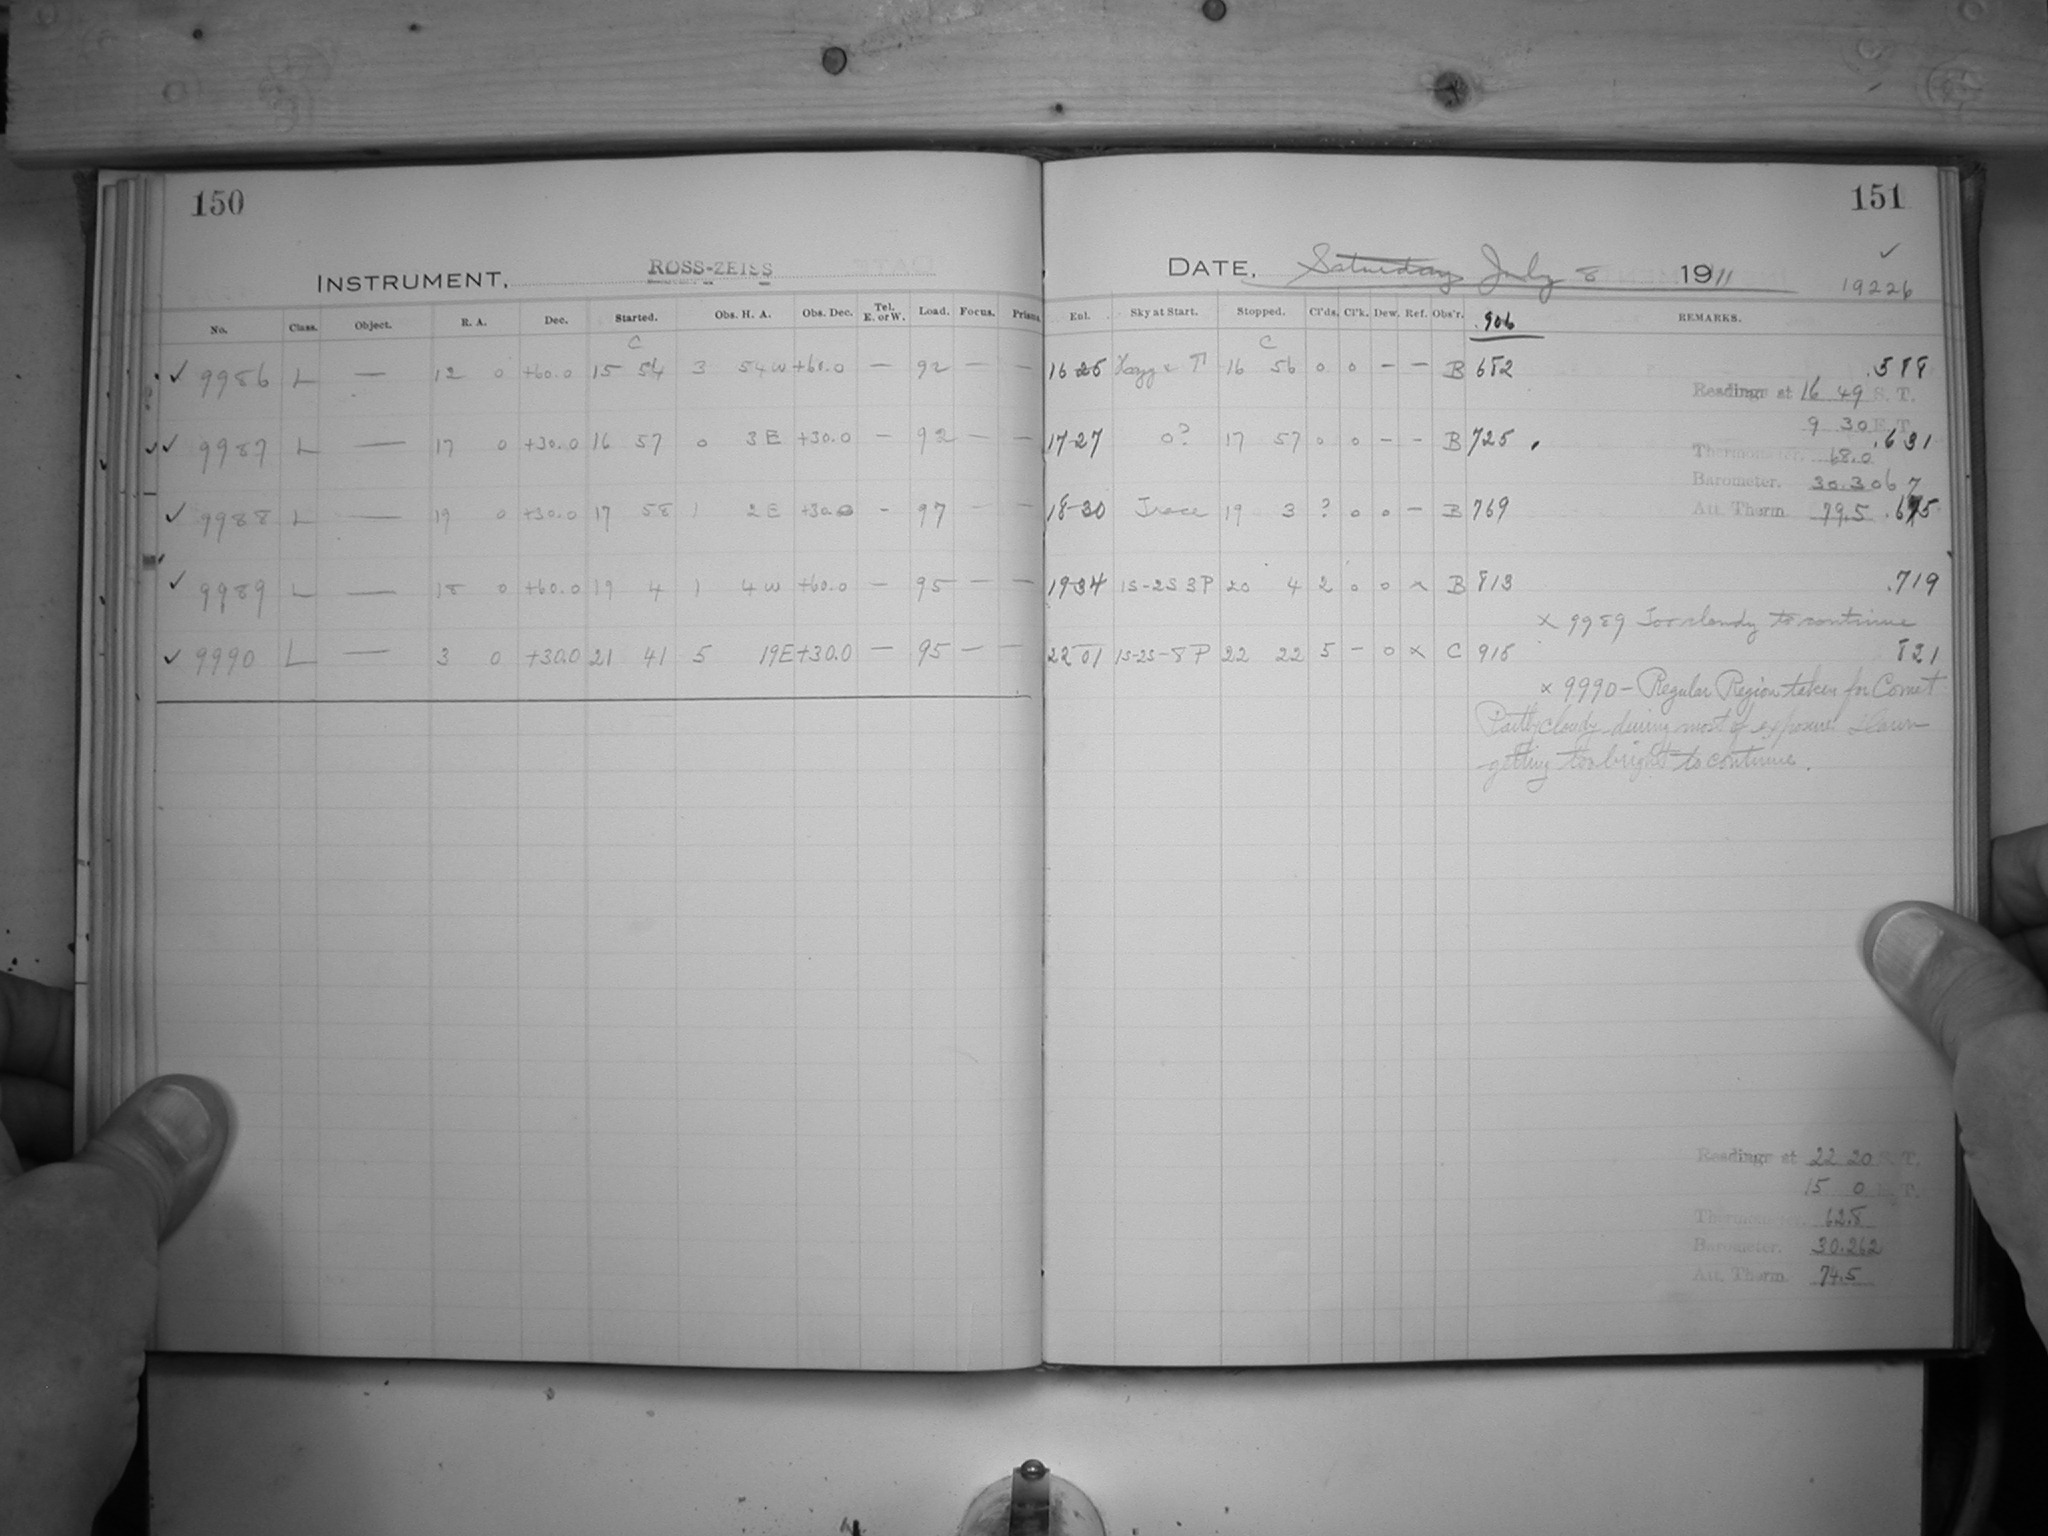 150
INSTRUMENT, ROSS-ZEISS
No. Class. Object. R. A. Dec. Started. Obs. H. A. Obs. Dec. Tel. E. or W. Load. Focus. Prisms.
C
✓ 9986 L — 12 0 +60.0 15 54 3 54 W +60.0 — 92 — —
✓ 9987 L — 17 0 +30.0 16 57 0 3 E +30.0 — 92 — —
✓ 9988 L — 19 0 +30.0 17 58 1 2 E +30.0 - 97 - —
✓ 9989 L — 18 0 +60.0 19 4 1 4 W +60.0 — 95 — —
✓ 9990 L — 3 0 +30.0 21 41 5 19 E +30.0 — 95 — —
151
✓
DATE, Saturday July 8 1911
19226
Enl. Sky at Start. Stopped. Cl'ds. Cl'k. Dew. Ref. Obs'r. .906 REMARKS.
C
16 25 16 56 0 0 - - B 682 .588
Readings at 16 49 S. T.
9 30 E. T.
17 27 0? 17 57 0 0 - - B 725 .631
Thermometer. 68.0
Barometer. 30.306
18 30 Trace 19 3 ? 0 0 - B 769 .675
Att. Therm. 79.5
19 34 1S-2S 3P 20 4 2 0 0 x B 813 .719
x 9989 Too cloudy to continue
22 01 1S-2S-8P 22 22 5 - 0 x C 915 821
x 9990 - Regular Region taken for Comet
Partly cloudy during most of exposure. Dawn
getting too bright to continue.
Readings at 22 20 S. T.
15 0 E. T.
Thermometer. 62.8
Barometer. 30.262
Att. Therm. 74.5